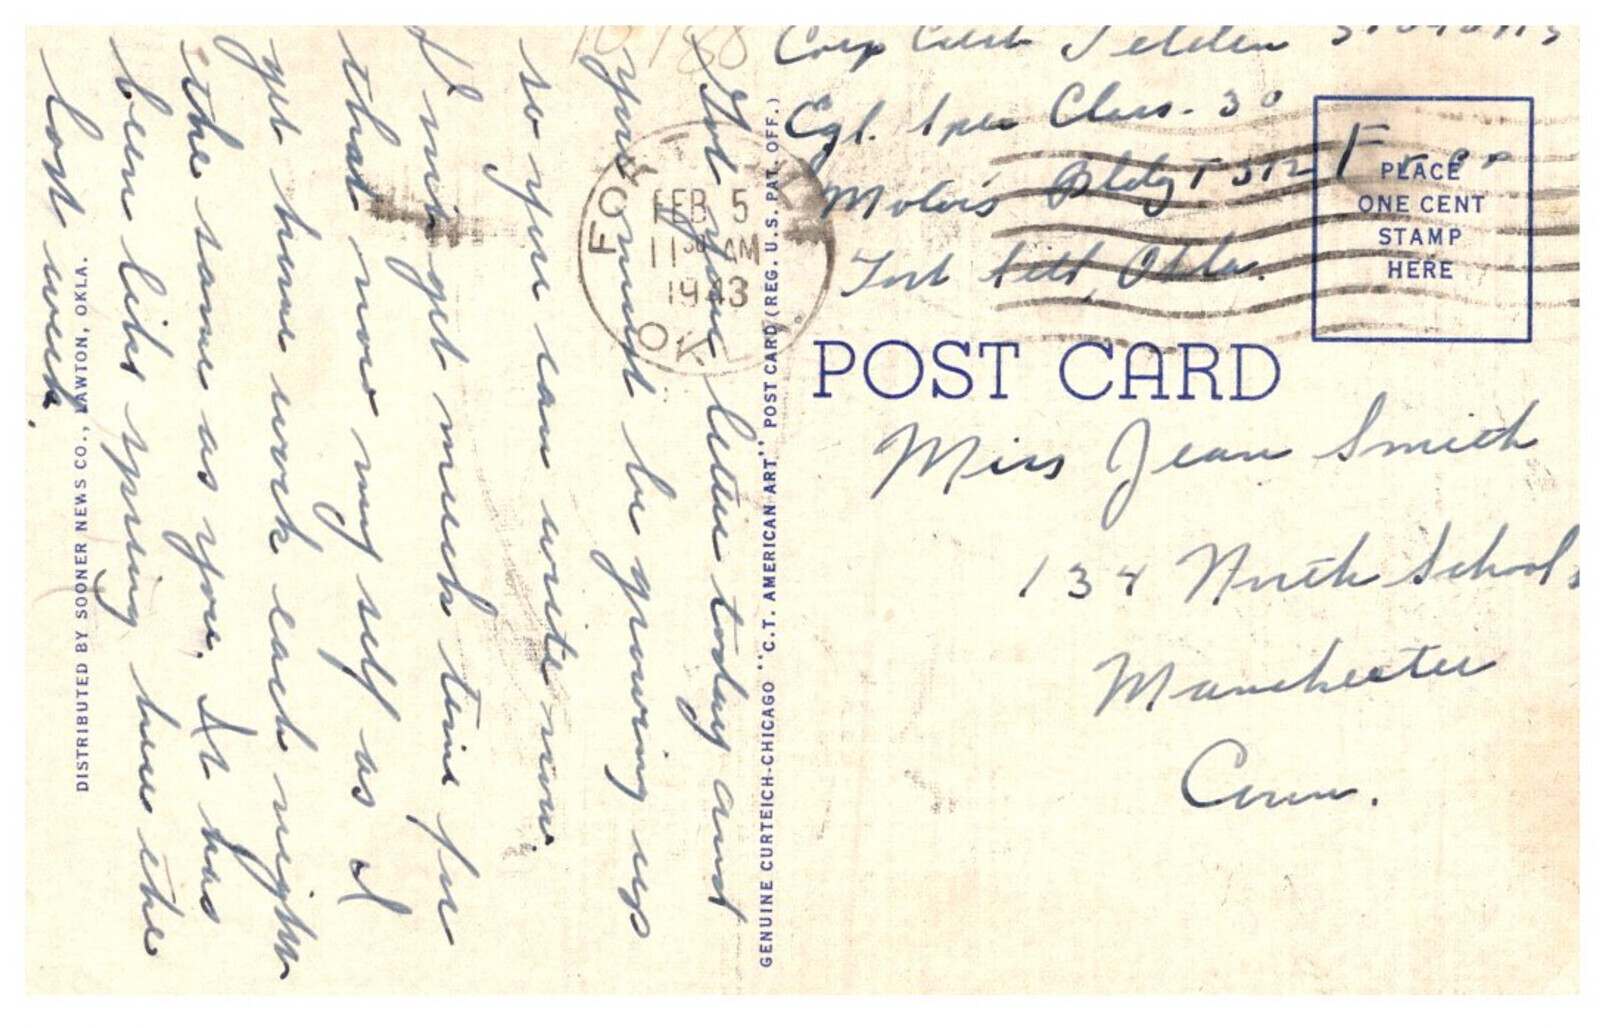 10188
Corp
Class. 30
Motors Bldg T 312
Fort Sill, Okla.
Free
PLACE
ONE CENT
STAMP
HERE
FEB 5
11 30 AM
1943
OK
POST CARD
Miss Jean Smith
134 North School
Manchester
Conn.
Got your letter today and
you must be growing up
so you can write now.
I not get much time for
that now my self as I
get home work each night
the same as you. It has
been like spring here the
last week.
GENUINE CURTEICH-CHICAGO "C.T. AMERICAN ART" POST CARD (REG. U.S. PAT. OFF.)
DISTRIBUTED BY SOONER NEWS CO., LAWTON, OKLA.